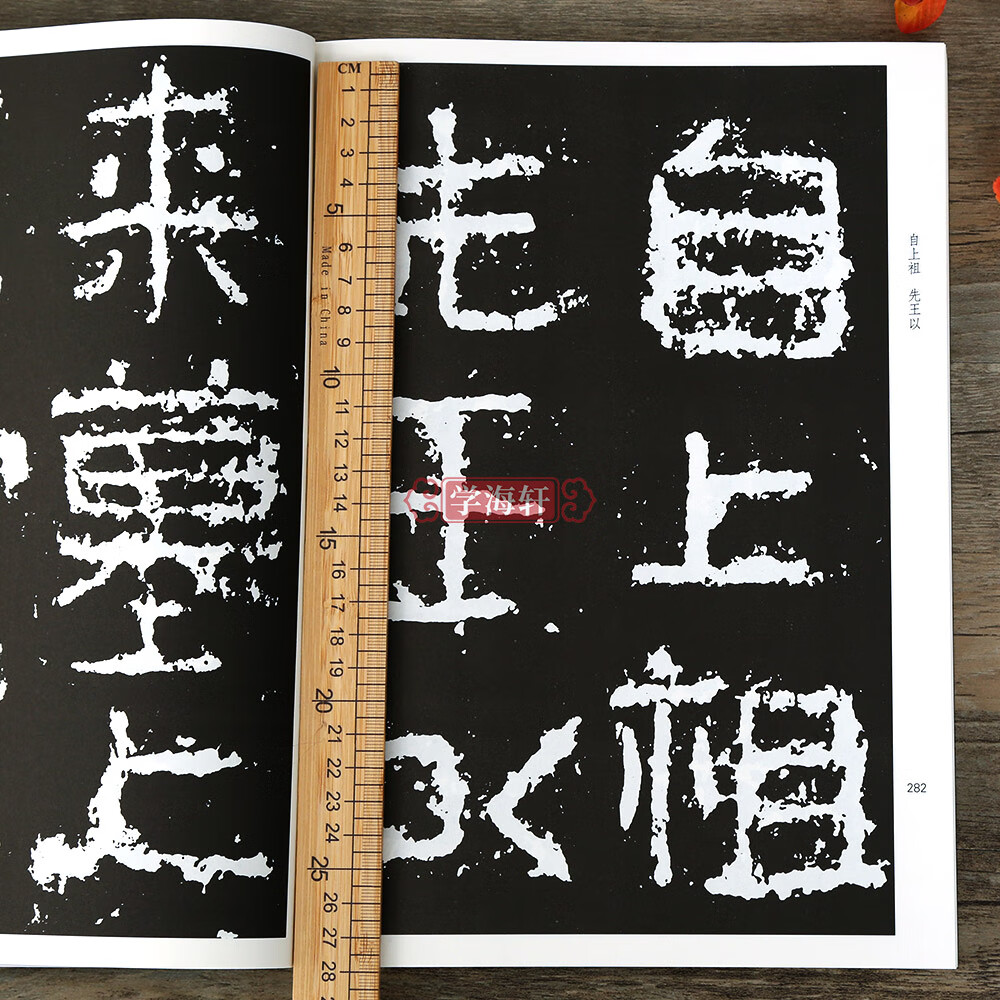 自上祖
先王以
來墓上
自上祖 先王以
282
学海轩
CM
1
2
3
4
5
6
7
8
9
10
11
12
13
14
15
16
17
18
19
20
21
22
23
24
25
26
27
28
Made in China